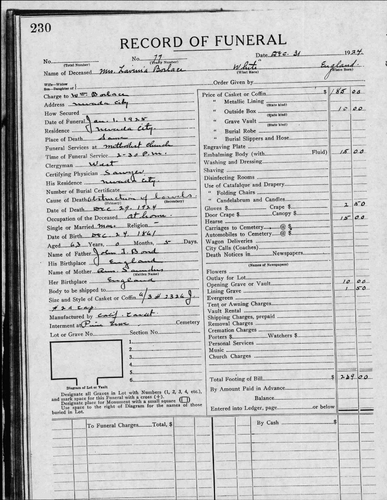 230
RECORD OF FUNERAL
No. 77 Dec. 31 1924
(Total Number) (Yearly Number) (Date of Entry)
Name of Deceased Mrs. Lavinia Borlace White England
(What Race) (Where Born)
Wife—Widow
Son or Daughter of Order Given by
Charge to Wm Borlace
Address Nevada City
How Secured
Date of Funeral Jan. 1, 1925
Residence Nevada City
Place of Death Same
Funeral Services at Methodist Church
Time of Funeral Service 2-30 P.M.
Clergyman West
Certifying Physician Sawyer
His Residence Nevada City
Number of Burial Certificate
Cause of Death Obstruction of bowels
Date of Death Dec. 1924
Occupation of the Deceased At home
Single or Married Mar Religion
Date of Birth Dec. 24 1861
Aged 63 Years 0 Months 5 Days
Name of Father John S. Bond
His Birthplace England
Name of Mother Ann Saunders
Her Birthplace England
Body to be shipped to
Size and Style of Casket or Coffin
Manufactured by Calif Casket
Interment at Pine Grove Cemetery
Lot or Grave No. Section No.
1
2
3
4
5
Diagram of Lot or Vault
Designate all Graves in Lot with Numbers (1, 2, 3, 4, etc.),
and mark space for this Funeral with a cross (+).
Designate place for Monument with a small square
Use space to right of Diagram for Names of those
buried in Lot.
Price of Casket or Coffin 185 00
" Metallic Lining
" Outside Box 10 00
" Grave Vault
" Burial Robe
" Burial Slippers and Hose
Engraving Plate
Embalming Body (with Fluid) 15 00
Washing and Dressing
Shaving
Disinfecting Rooms
Use of Catafalque and Drapery
" Folding Chairs
" Candelabrum and Candles
Gloves $ Crape $ 2 50
Door Crape $ Canopy $
Hearse 15 00
Carriages to Cemetery @ $
Automobiles to Cemetery @ $
Wagon Deliveries
City Calls (Coaches)
Death Notices in Newspapers
(Names of Newspapers)
Flowers
Outlay for Lot
Opening Grave or Vault 10 00
Lining Grave 1 50
Evergreen
Tent or Awning Charges
Vault Rental
Shipping Charges, prepaid
Removal Charges
Cremation Charges
Porters $ Watchers $
Personal Services
Music
Church Charges
Total Footing of Bill $ 239 00
By Amount Paid in Advance
Balance
Entered into Ledger, page or below
To Funeral Charges, Total $ By Cash $